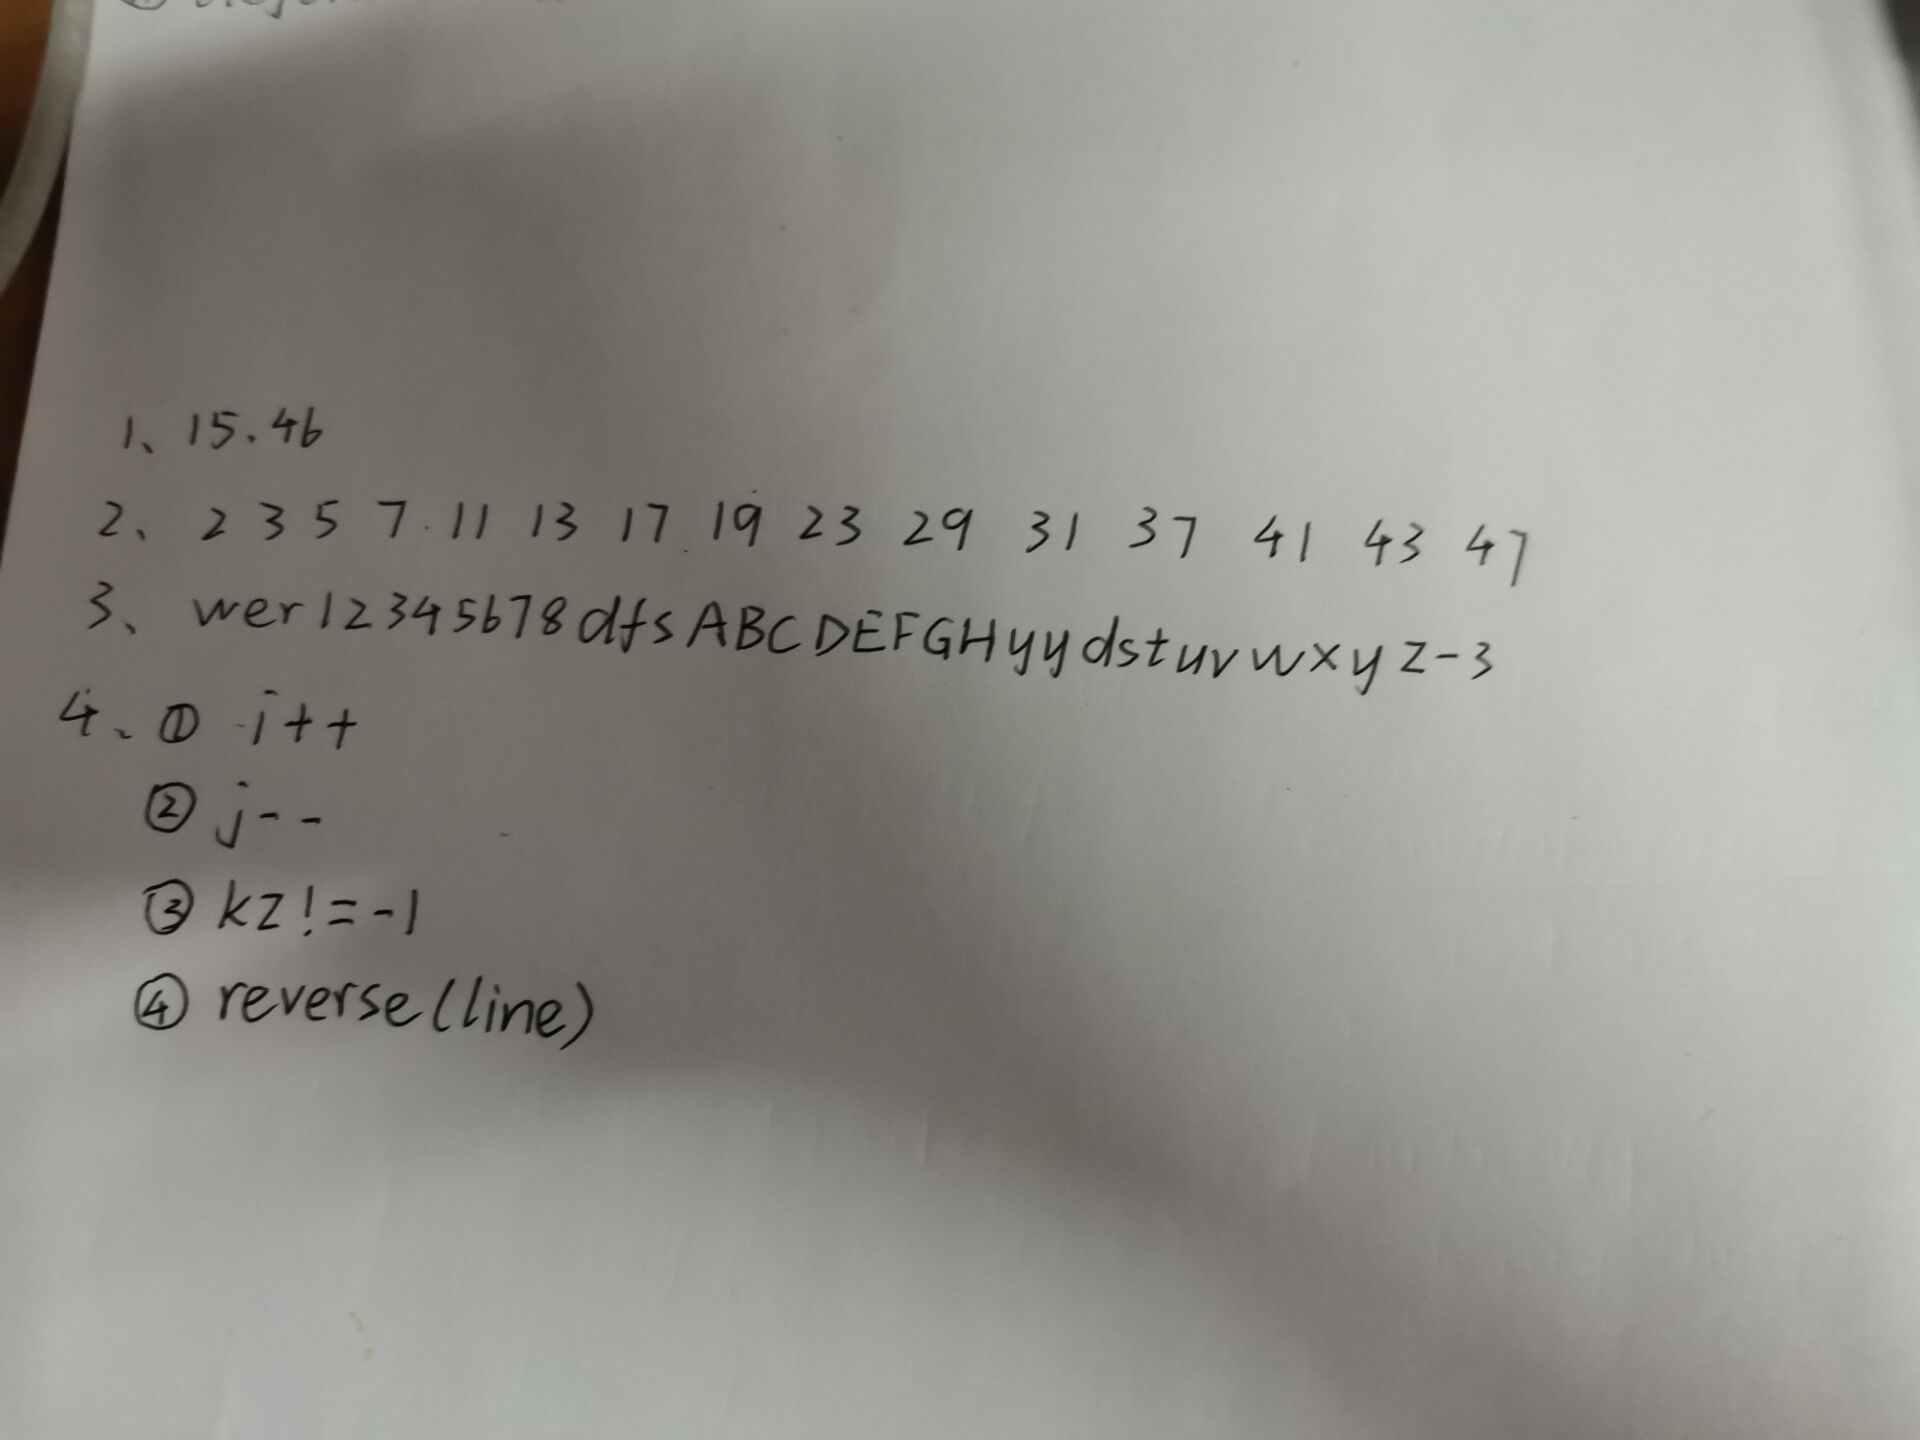 1、15.46
2、2 3 5 7 11 13 17 19 23 29 31 37 41 43 47
3、wer12345678dfsABCDEFGHyydstuvwxyz-3
4、① i++
② j--
③ kz!=-1
④ reverse(line)